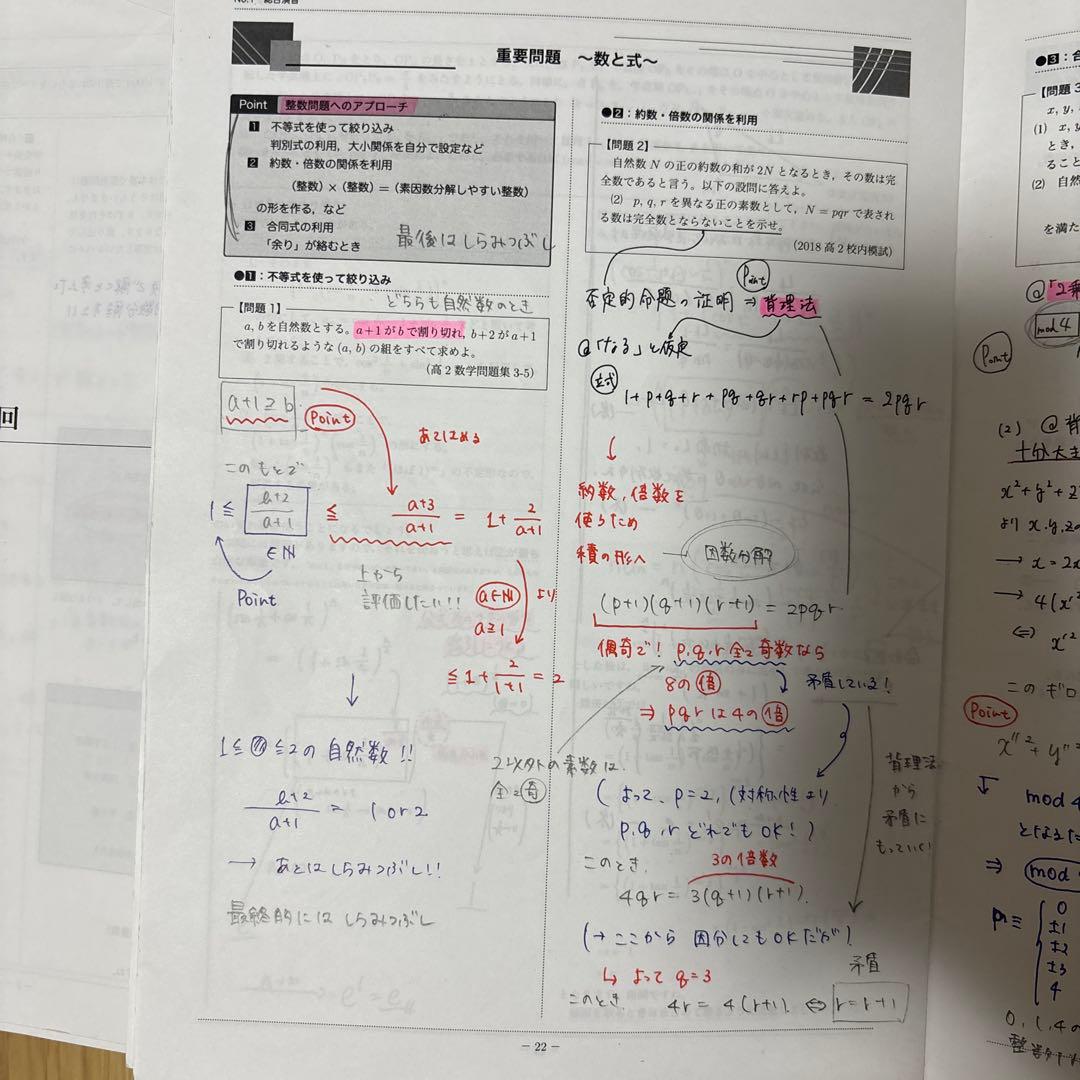 重要問題 ～数と式～
Point 整数問題へのアプローチ
1 不等式を使って絞り込み
判別式の利用，大小関係を自分で設定など
2 約数・倍数の関係を利用
（整数）×（整数）＝（素因数分解しやすい整数）
の形を作る，など
3 合同式の利用
「余り」が絡むとき
最後はしらみつぶし
●1：不等式を使って絞り込み
どちらも自然数のとき
【問題 1】
a, b を自然数とする。a+1 が b で割り切れ，b+2 が a+1
で割り切れるような (a, b) の組をすべて求めよ。
（高 2 数学問題集 3-5）
a+1≧b
Point
あてはめる
このもとで
1 ≦ b+2/a+1 ≦ a+3/a+1 = 1+ 2/a+1
∈N
Point
上から
評価したい!!
a∈N より
a≧1
≦ 1+ 2/1+1 = 2
1≦ ≦2の 自然数!!
b+2/a+1 = 1 or 2
→ あとはしらみつぶし!!
最終的には しらみつぶし
●2：約数・倍数の関係を利用
【問題 2】
自然数 N の正の約数の和が 2N となるとき，その数は完
全数であると言う。以下の設問に答えよ。
(2) p, q, r を異なる正の素数として，N = pqr で表され
る数は完全数とならないことを示せ。
（2018 高 2 校内模試）
Point
否定的命題の証明 ⇒ 背理法
@「なる」と仮定
立式
1+p+q+r+pq+qr+rp+pqr = 2pqr
↓
約数，倍数を
使うため
積の形へ
因数分解
(p+1)(q+1)(r+1) = 2pqr
偶奇で! p,q,r 全て奇数なら
8の倍
矛盾している!
⇒ pqrは4の倍
2以外の素数は
全て奇
( よって、p=2, (対称性より
p,q,r どれでもOK!)
背理法
から
矛盾に
もっていく!
このとき，
3の倍数
4qr = 3(q+1)(r+1).
(→ ここから 因分してもOKだが)
↳ よって q=3
矛盾
このとき，
4r = 4(r+1). ⇔ r=r+1
− 22 −
回
【問題 3
x, y,
(1)
とき，
ること
(2) 自然
を満た
mod 4
Point
(2)
x²+y²+z
より x,y,z
→ x=2x
→ 4(x'²
⇔ x'²
Point
x''²+y''²
↓ mod 4
⇒ mod
0
±1
±2
±3
4